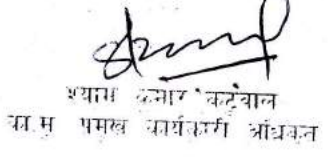 श्याम कुमार कटुवाल
का.मु प्रमुख कार्यकारी अधिकृत